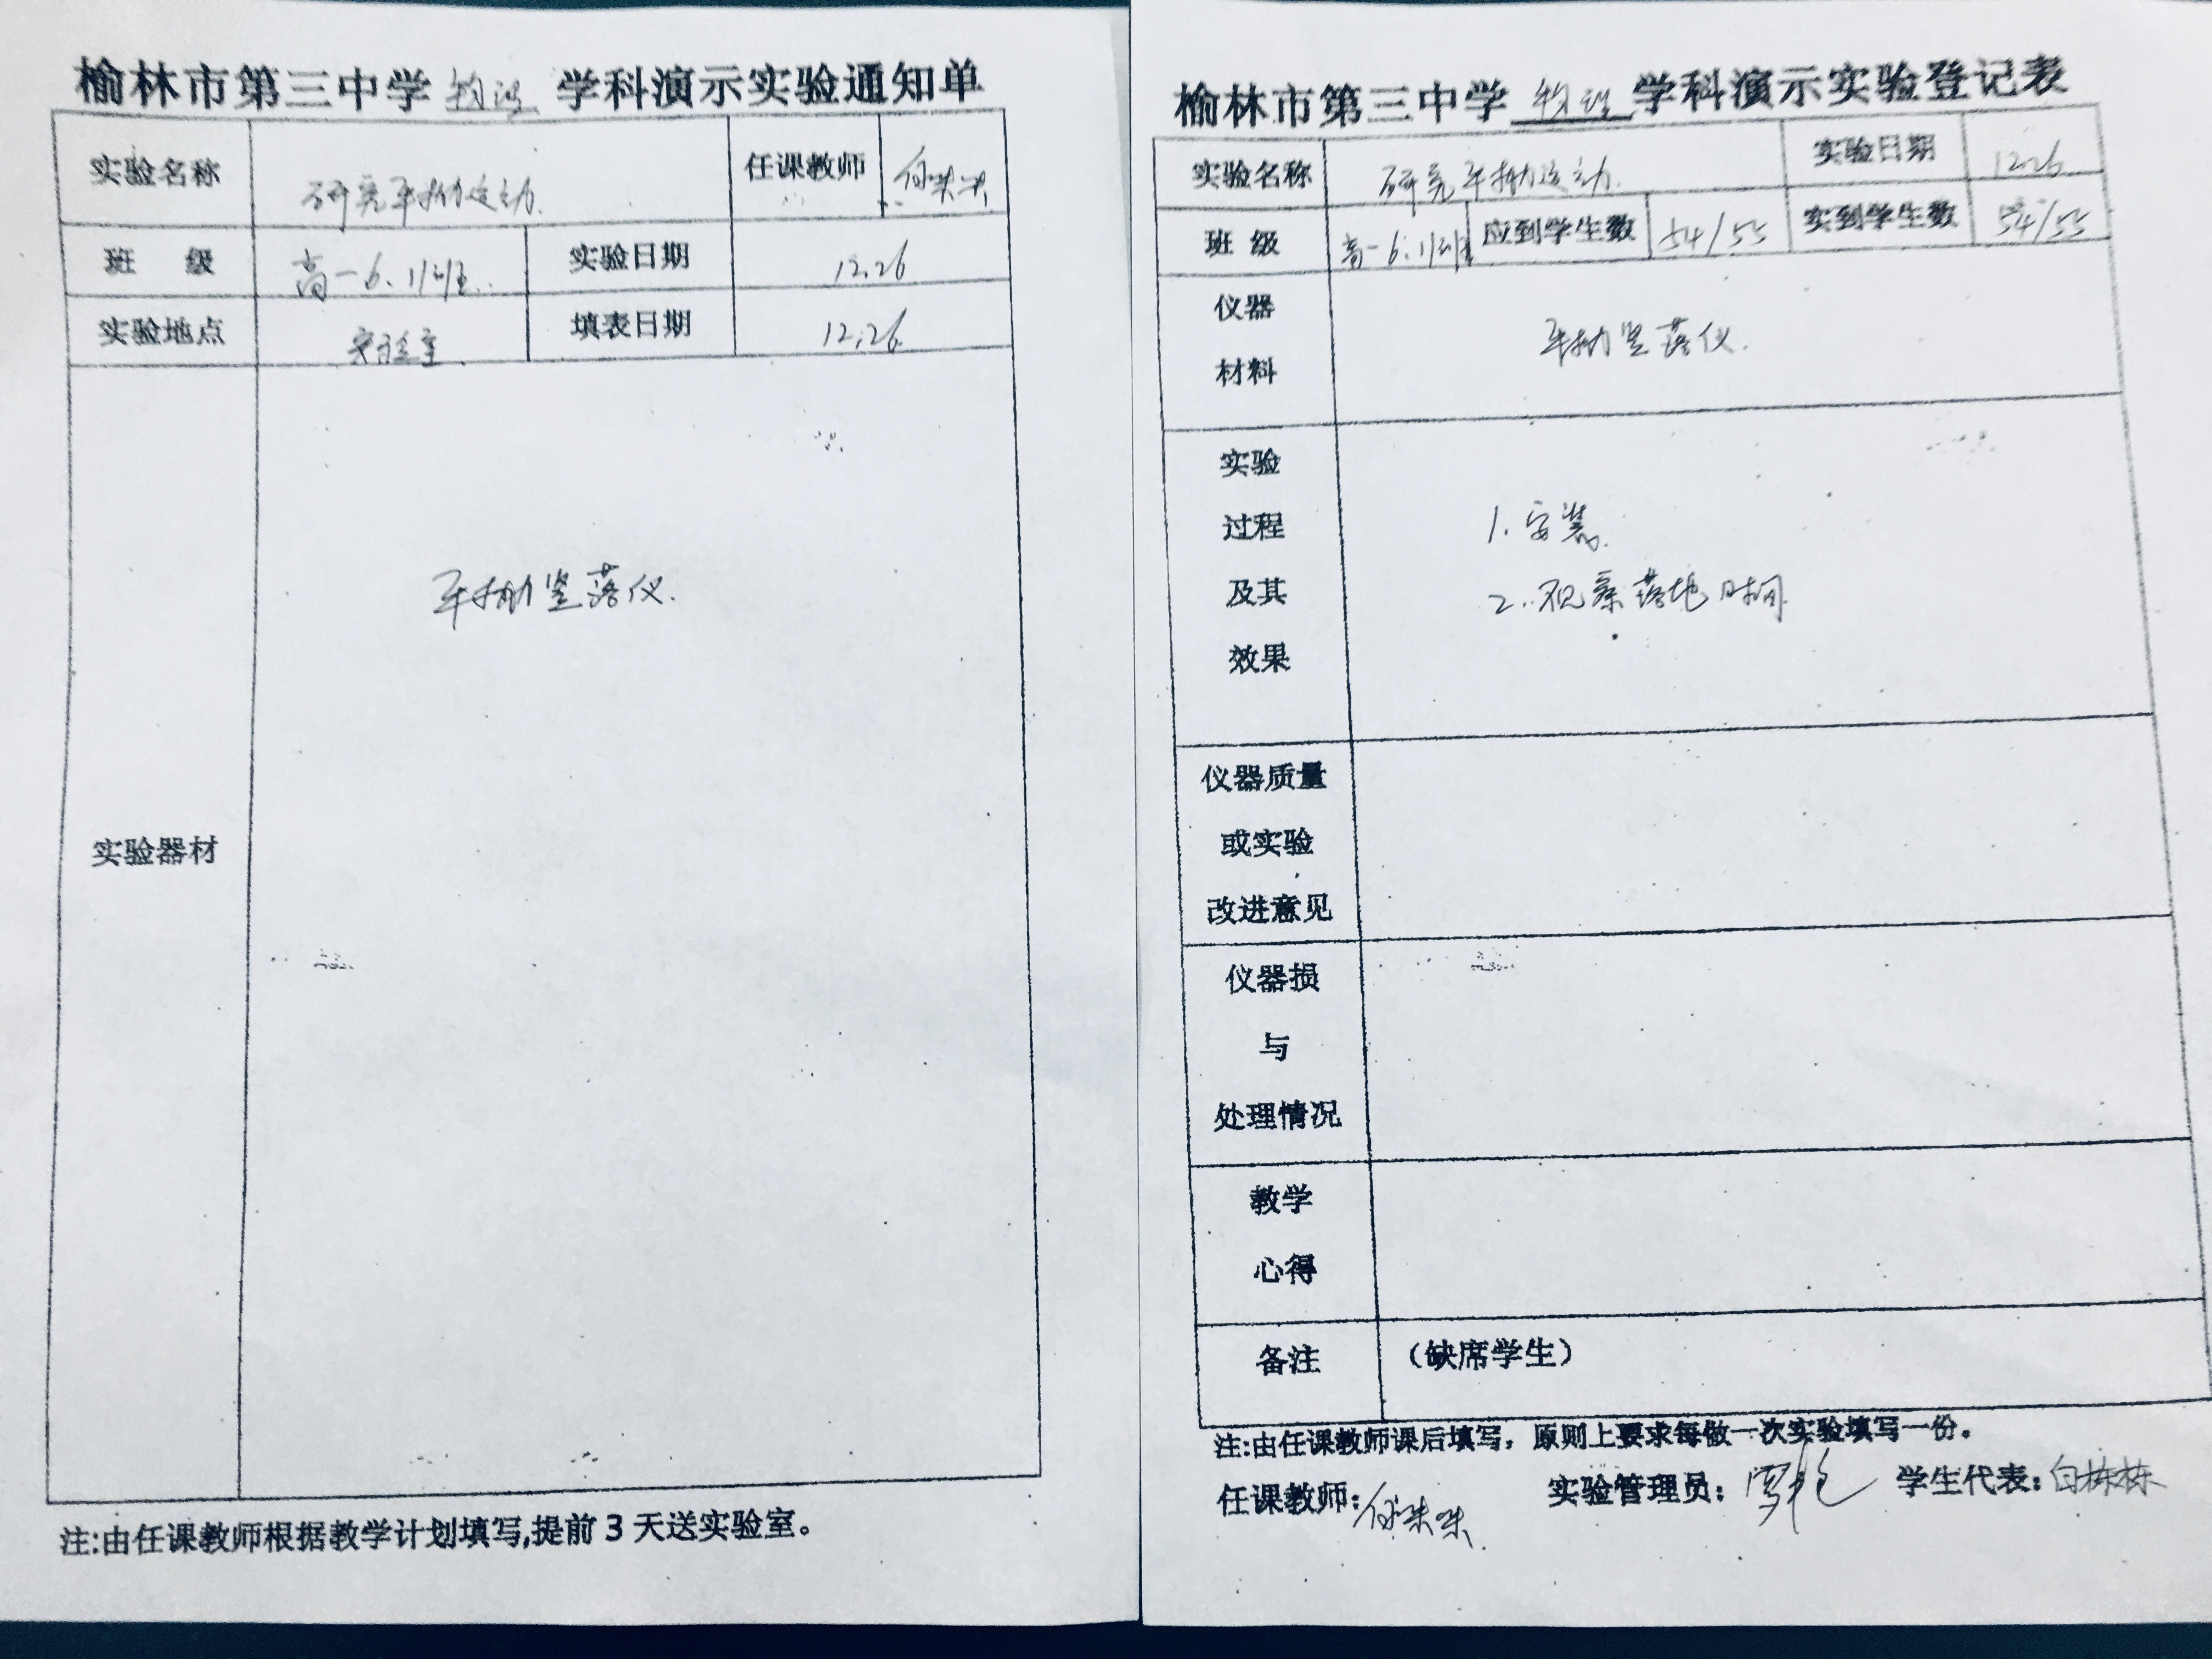 榆林市第三中学 物理 学科演示实验通知单
实验名称 研究平抛运动. 任课教师
班 级 高一6、11班 实验日期 12.26
实验地点 实验室 填表日期 12.26
平抛竖落仪.
实验器材
注:由任课教师根据教学计划填写,提前3天送实验室。
榆林市第三中学 物理 学科演示实验登记表
实验名称 研究平抛运动. 实验日期 12.26
班 级 高一6、11班 应到学生数 54/55 实到学生数 54/55
仪器
平抛竖落仪.
材料
实验
过程 1.安装.
及其 2.观察落地时间.
效果
仪器质量
或实验
改进意见
仪器损
与
处理情况
教学
心得
备注 (缺席学生)
注:由任课教师课后填写，原则上要求每做一次实验填写一份。
任课教师: 实验管理员: 学生代表:白栋栋